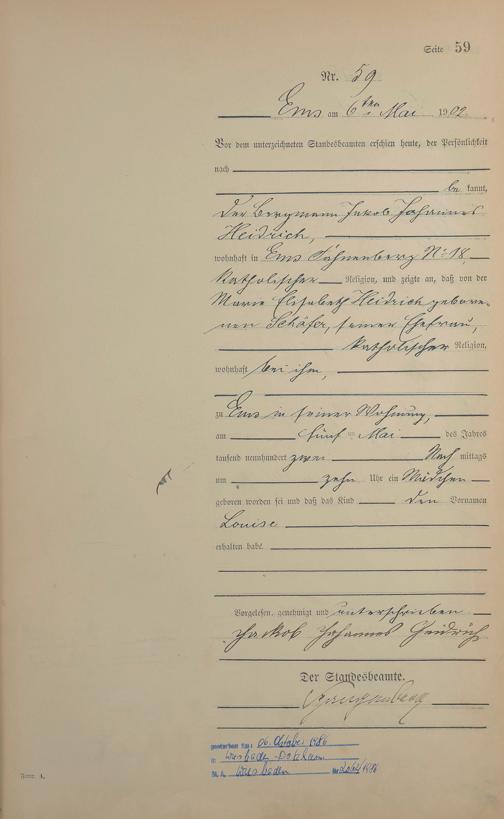 Seite 59
Nr. 59
Ems am 6ten Mai 1902
Vor dem unterzeichneten Standesbeamten erschien heute, der Persönlichkeit
nach
be kannt,
der Bergmann Jakob Johannes
Heidrich,
wohnhaft in Ems Nr. 18
katholischer Religion, und zeigte an, daß von der
Marie Elisabeth Heidrich gebore-
nen Schäfer, seiner Ehefrau,
katholischer Religion,
wohnhaft bei ihm,
zu Ems in seiner Wohnung,
am fünf ten Mai des Jahres
tausend neunhundert zwei Nach mittags
um zehn Uhr ein Mädchen
geboren worden sei und daß das Kind den Vornamen
Louise
erhalten habe.
Vorgelesen, genehmigt und unterschrieben
Jackob Johannes Heidrich
Der Standesbeamte.
gestorben am: 06. Oktober 1986
in Wiesbaden-Dotzheim
St. A. Wiesbaden
Form. A.